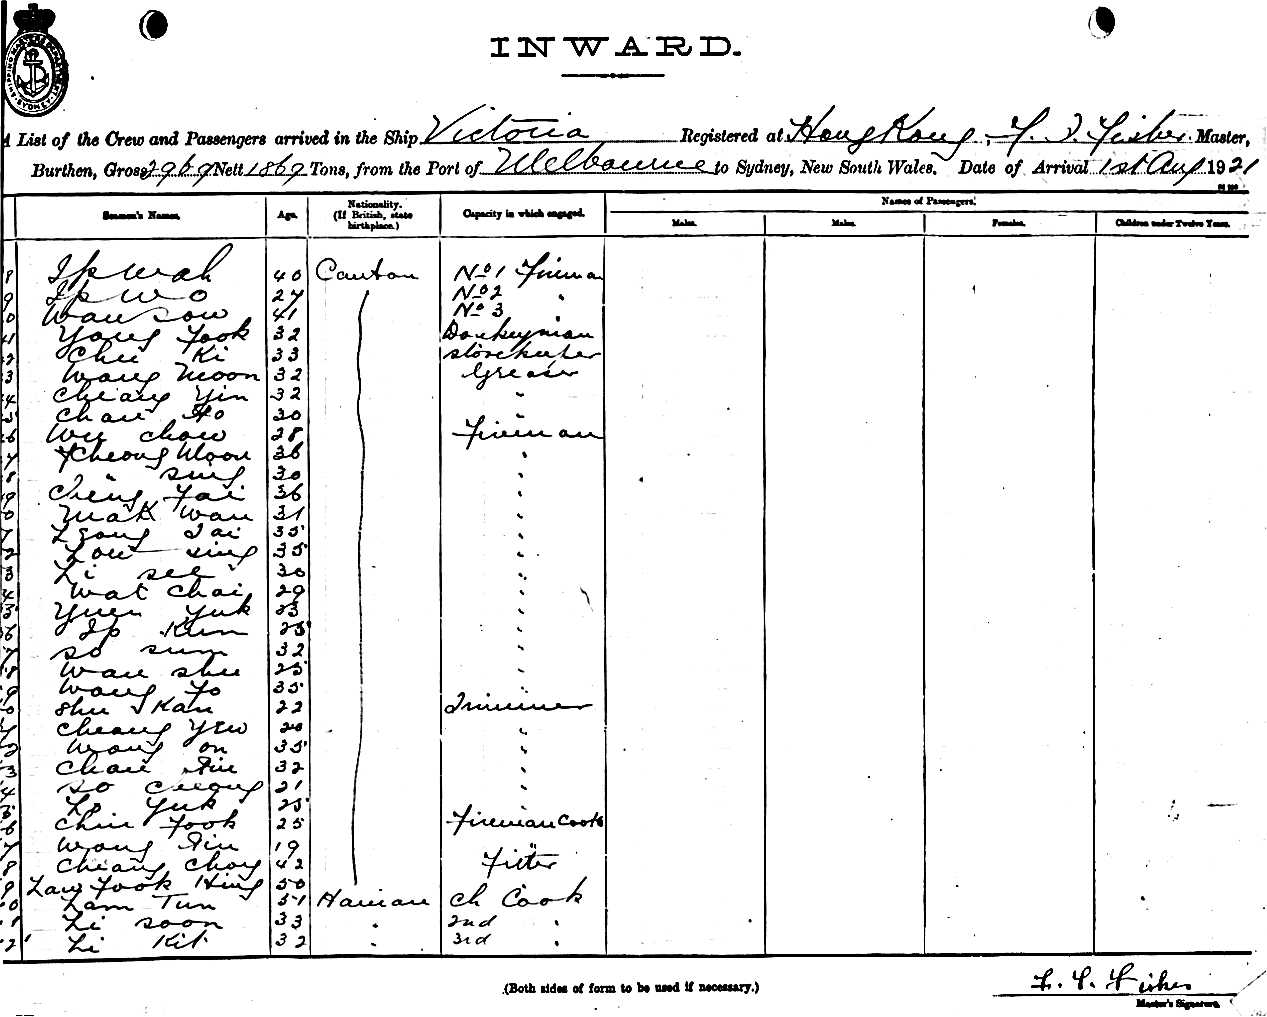 SHIPPING MASTERS DEPARTMENT SYDNEY
INWARD.
A List of the Crew and Passengers arrived in the Ship Victoria Registered at Hong Kong, Fisher Master,
Burthen, Gross 2969 Nett 1869 Tons, from the Port of Melbourne to Sydney, New South Wales. Date of Arrival 1st Aug 1921
Seamen's Names. Age. Nationality. (If British, state birthplace.) Capacity in which engaged. Names of Passengers.
Males. Males. Females. Children under Twelve Years.
8 Ip Wah 40 Canton No 1 Fireman
9 Ip Wo 27 No 2 "
0 Wan Sow 41 No 3
1 Yong Fook 32 Donkeyman
2 Chu Ki 33 Storekeeper
3 Wong Moon 32 Greaser
4 Cheang Yin 32 "
5 Chan Ho 30 "
6 Wu Chow 28 Fireman
7 Cheong Moon 36 "
8 " Sing 30 "
9 Fai 36 "
0 Mak Wan 31 "
1 Leong Tai 35 "
2 Low Sing 35 "
3 Li See 30 "
4 Wat Chai 29 "
5 Yuen Yuk 23 "
6 Ip Kun 25 "
7 So Sum 32 "
8 Wan Shu 25 "
9 Wong Fo 35 "
0 Shu Kan 22 Trimmer
1 Cheang Yew 20 "
2 Wong On 35 "
3 Chan 32 "
4 So Cheong 21 "
5 Yuk 25
6 Chin Fook 25 Fireman Cook
7 Wong 19
8 Cheang Choy 42 Fitter
9 Law Fook Hing 50
0 Lam Tun 51 Hainan Ch Cook
1 Li Soon 33 " 2nd "
2 Li Kit 32 " 3rd "
(Both sides of form to be used if necessary.)
Fisher
Master's Signature.